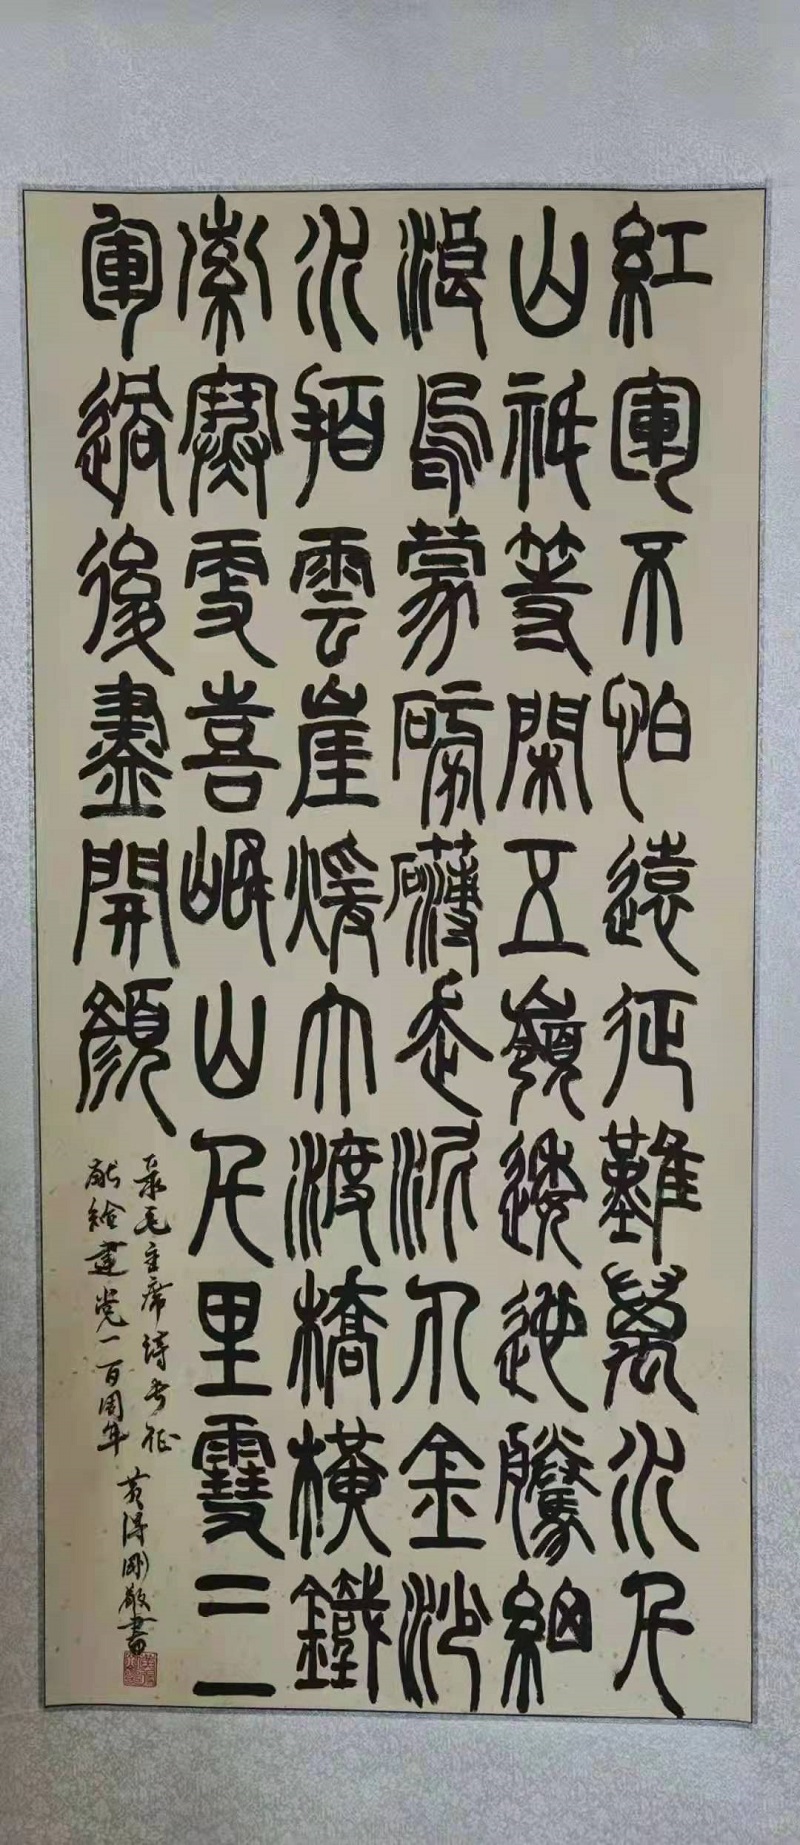 紅軍不怕遠征難萬水千
山祇等閑五嶺逶迤騰細
浪烏蒙磅礴走泥丸金沙
水拍雲崖煖大渡橋橫鐵
索寒更喜岷山千里雪三
軍過後盡開顏
录毛主席詩长征
献给建党一百周年
黄得刚敬書